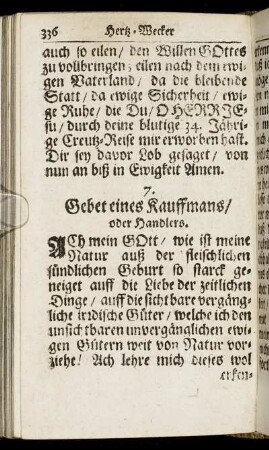 336 Hertz-Wecker
auch so eilen / den Willen GOttes
zu vollbringen; eilen nach dem ewi-
gen Vaterland / da die bleibende
Statt / da ewige Sicherheit / ewi-
ge Ruhe / die Du / O HERR JE-
su / durch deine blutige 34. Jähri-
ge Creutz-Reise mir erworben hast.
Dir sey davor Lob gesaget / von
nun an biß in Ewigkeit Amen.
7.
Gebet eines Kauffmans /
oder Handlers.
ACh mein GOtt / wie ist meine
Natur auß der fleischlichen
sündlichen Geburt so starck ge-
neiget auff die Liebe der zeitlichen
Dinge / auff die sichtbare vergäng-
liche irrdische Güter / welche ich den
unsichtbaren unvergänglichen ewi-
gen Gütern weit von Natur vor-
ziehe! Ach lehre mich dieses wol
erken-